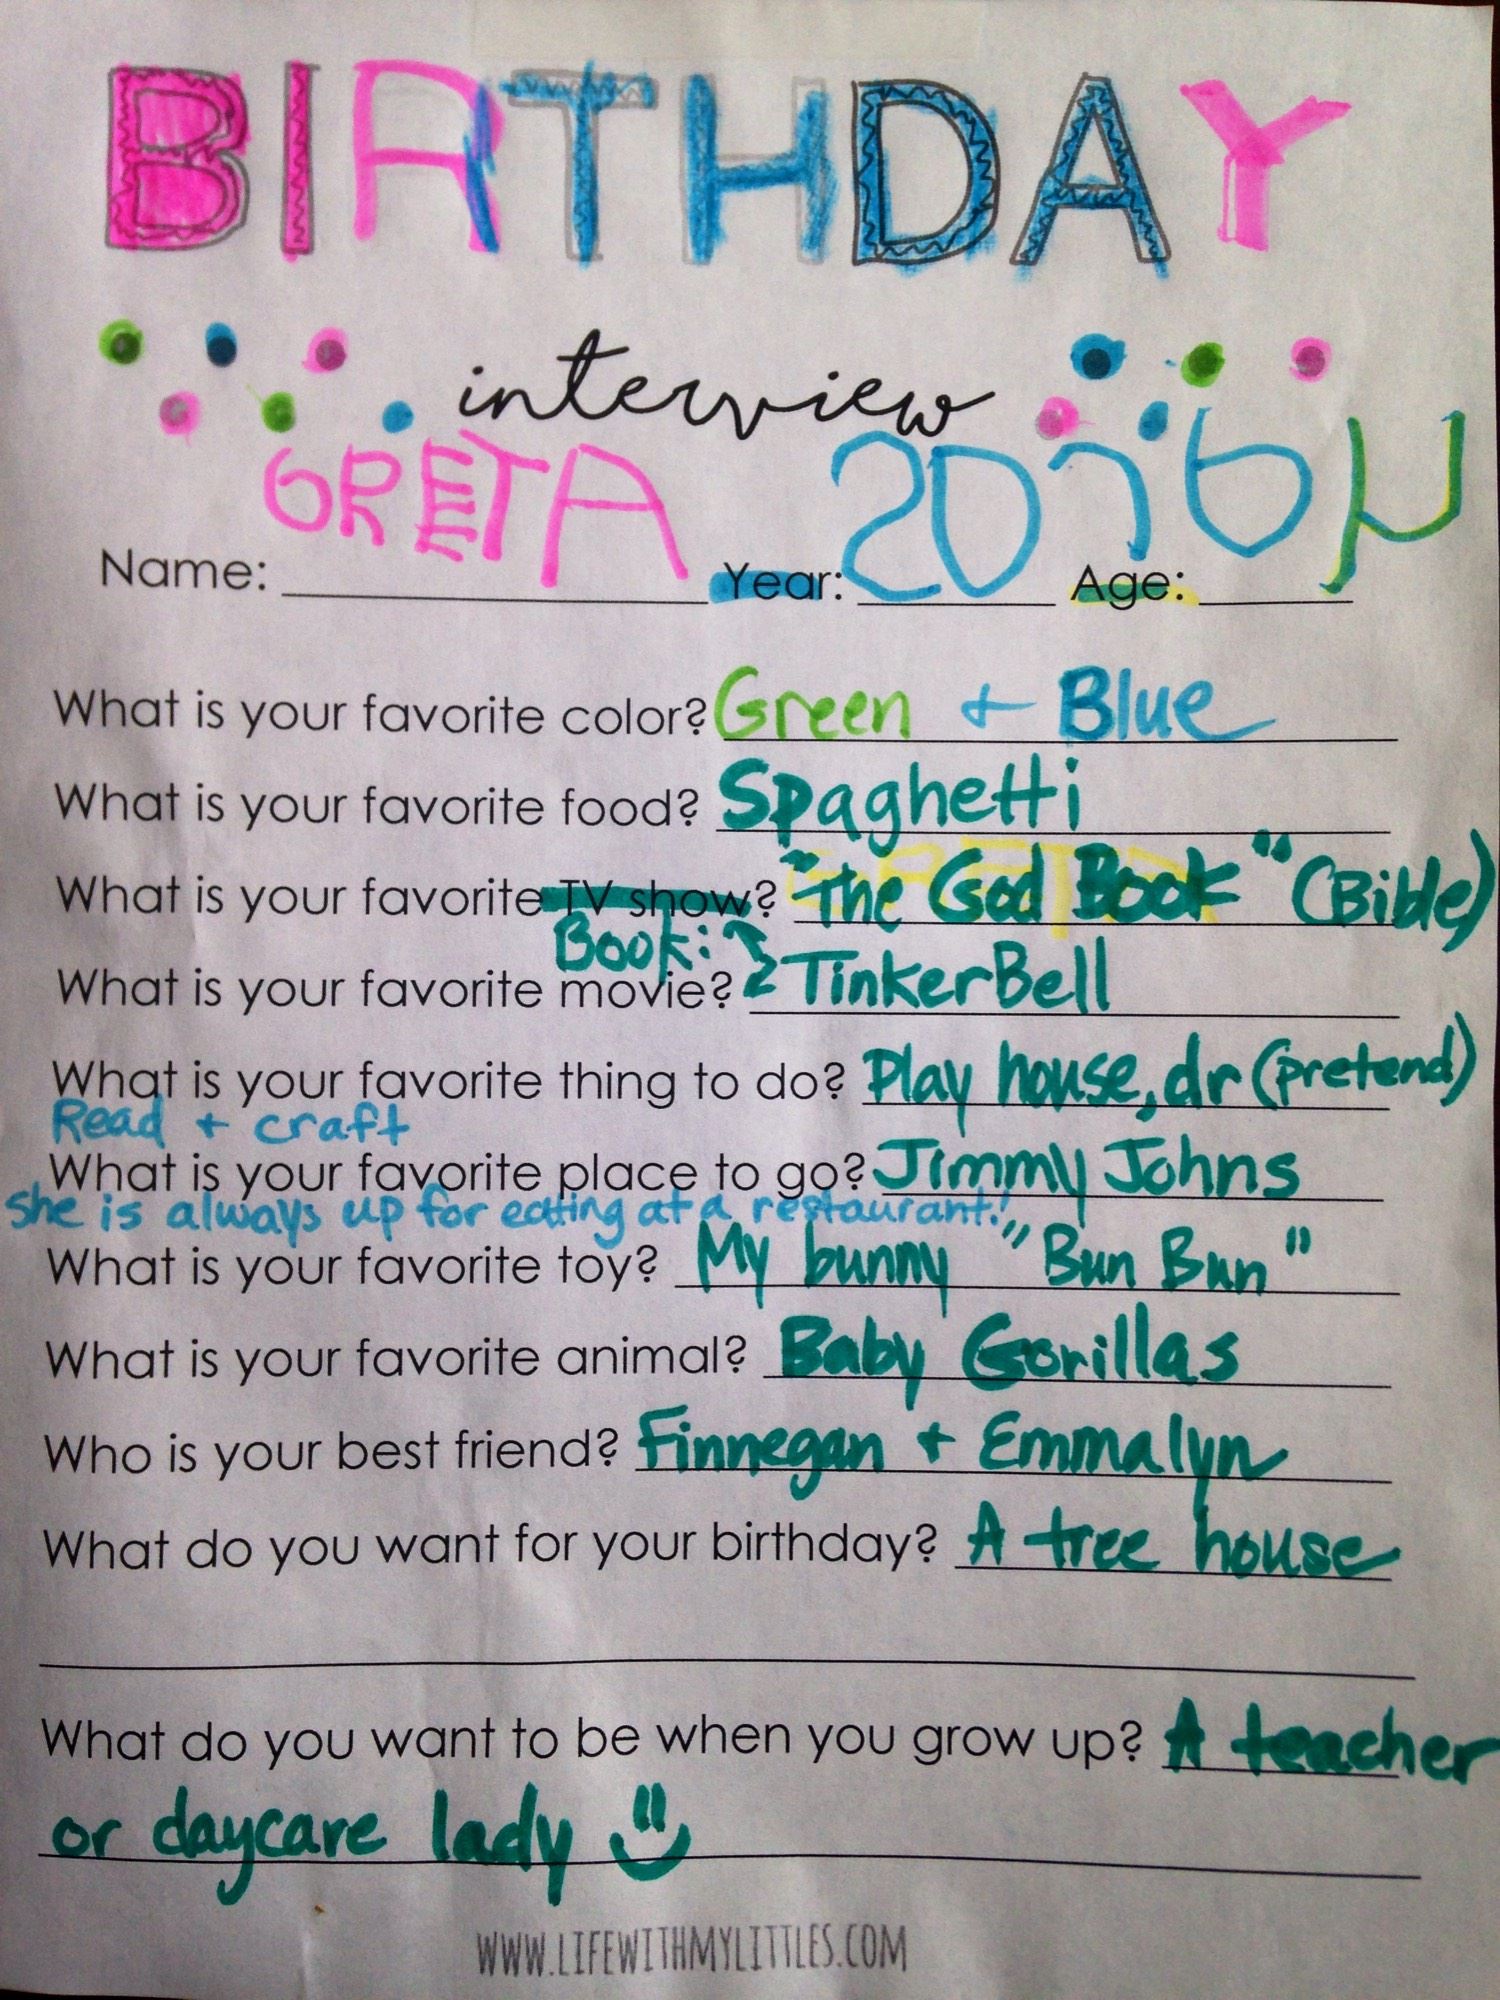 BIRTHDAY
interview
Name: GRETA Year: 2016 Age: 4
What is your favorite color? Green + Blue
What is your favorite food? Spaghetti
What is your favorite TV show? "The God Book" (Bible)
Book:
What is your favorite movie? TinkerBell
What is your favorite thing to do? Play house, dr (pretend)
Read + craft
What is your favorite place to go? Jimmy Johns
She is always up for eating at a restaurant!
What is your favorite toy? My bunny "Bun Bun"
What is your favorite animal? Baby Gorillas
Who is your best friend? Finnegan + Emmalyn
What do you want for your birthday? A tree house
What do you want to be when you grow up? A teacher
or daycare lady
WWW.LIFEWITHMYLITTLES.COM